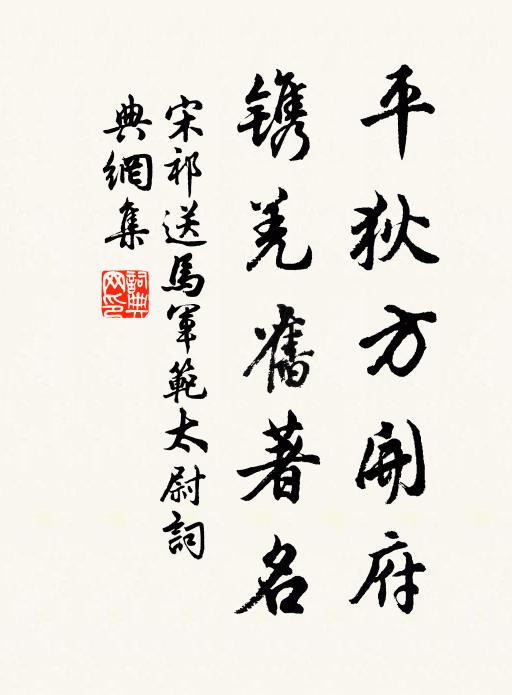 平狄方開府
鐫羌舊著名
宋祁送馬軍範太尉詞
典網集
詞典網印